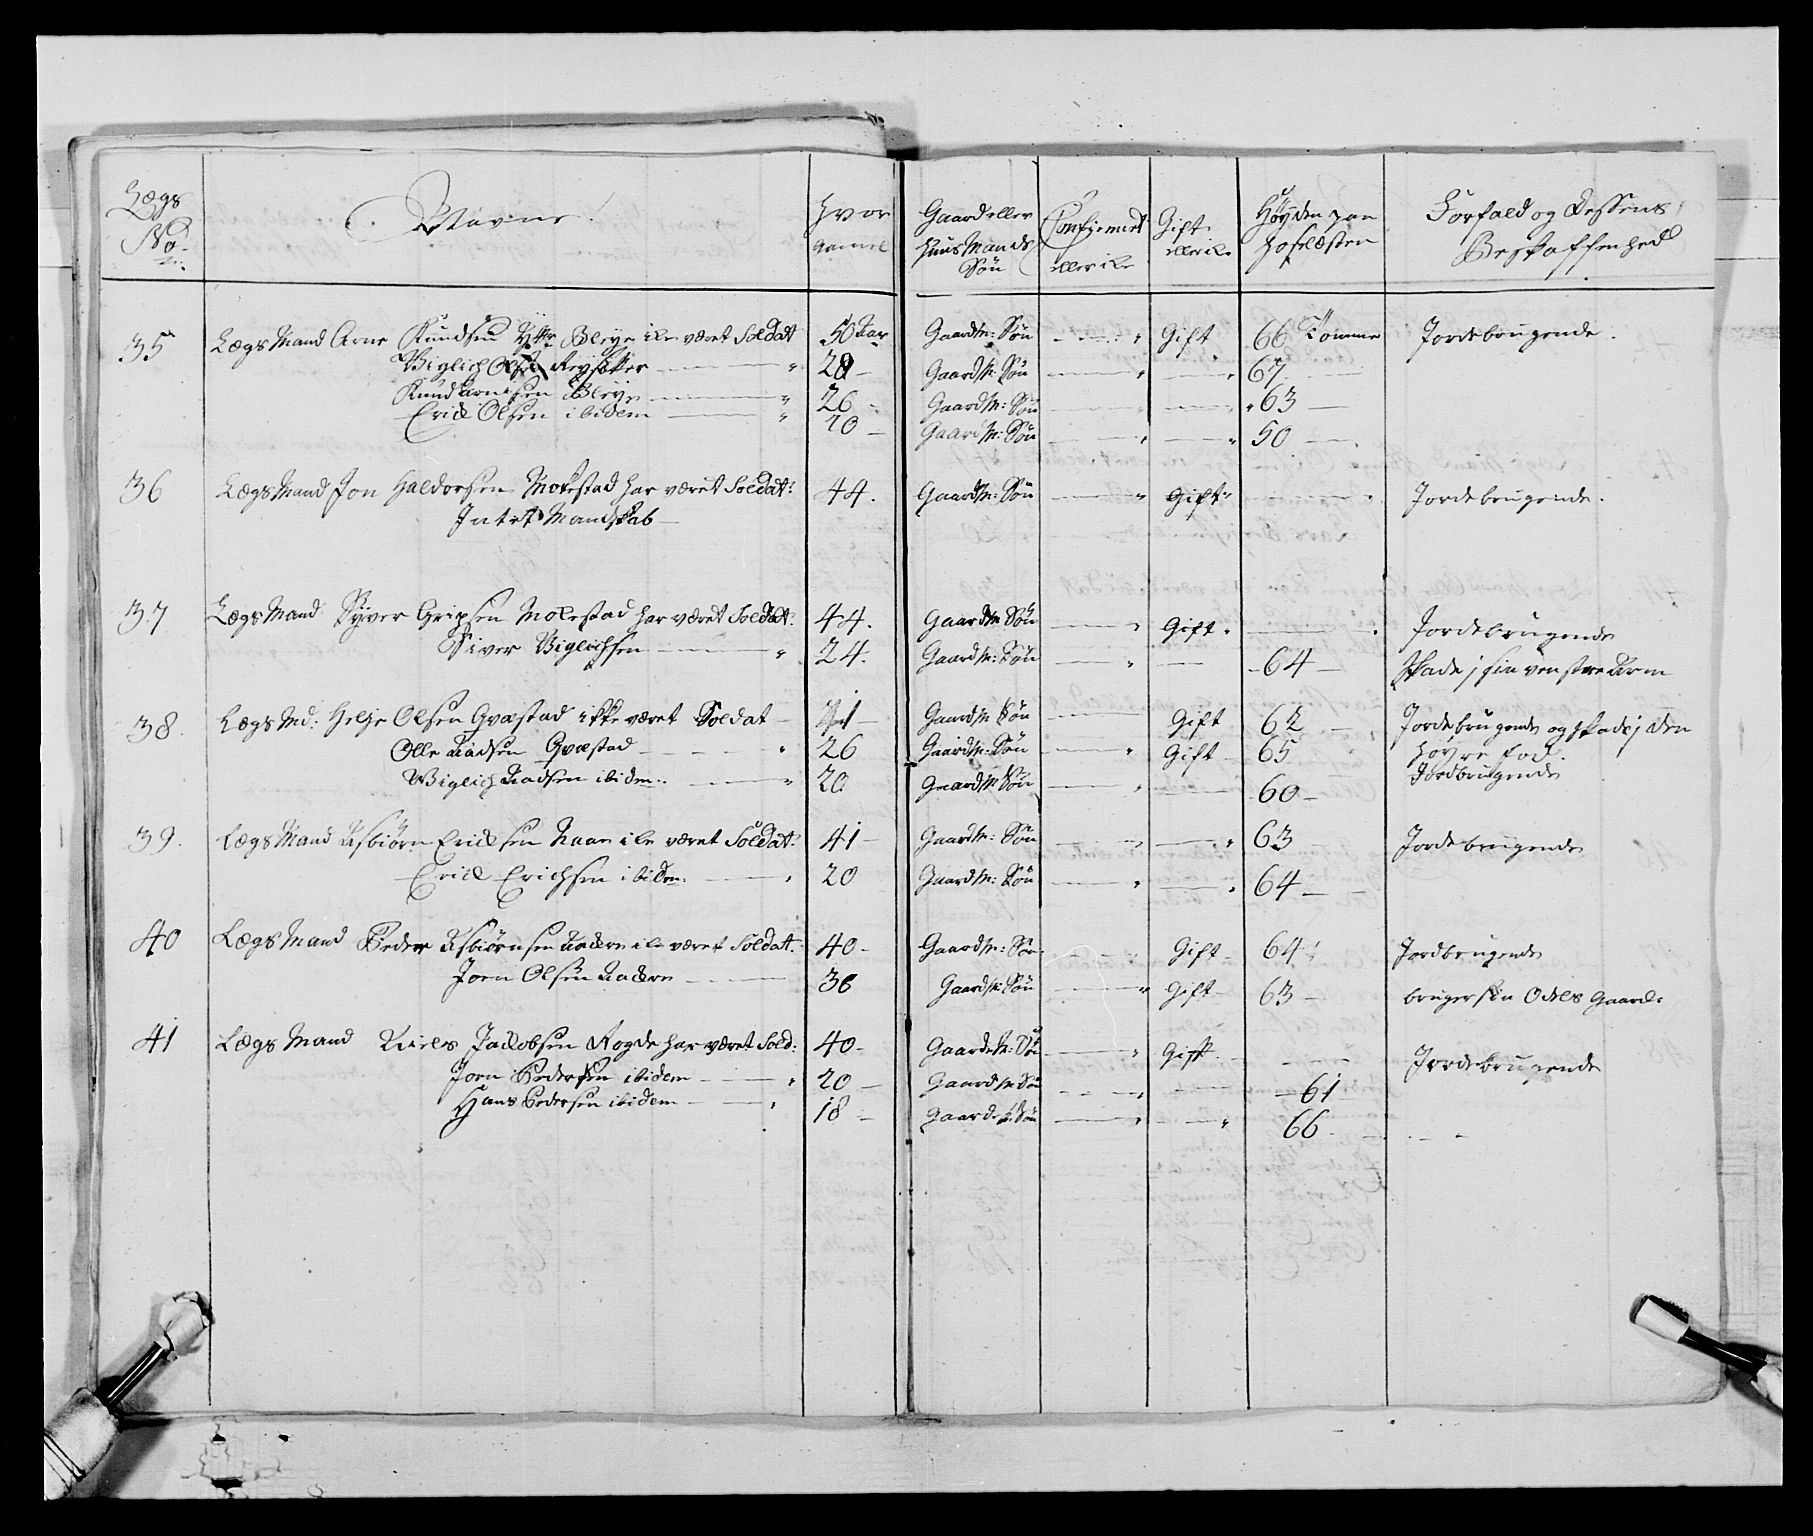 Lægs No: | Navne | Hvor gamel | Gaard eller Huus Mands Søn | Confirmeret eller ike | Gift eller ike | Høyden paa Hoselæsten | Forfald og Dessens Beskaffenhed
35 | Lægs Mand Arne Knudsen Yttr Bleye ike været Soldat | 50 Aar | Gaardm: Søn | — " | Gift | 66 Tomme | Jordebrugende.
Viglich Olsen — " | 28 — | Gaardm: Søn | — " | — " | 67 —
Knud Arnesen Bleye — " | 26 - | Gaardm: Søn | — " | — " | 63 —
Erich Olsen ibidem — " | 20 — | Gaardm: Søn | — " | — " | 50 —
36 | Lægs Mand Jon Haldorsen Molestad har været Soldat: | 44. | Gaardm: Søn | — " | Gift " | — " | Jordebrugende.
Intet Mandskab —
37 | Lægs Mand Syver Gripsen Molestad har været Soldat: | 44. | Gaardm Søn | — " | Gift " | — " | Jordebrugende
Siver Viglichsen — " | 24. | Gaardm: Søn | — " | — | - 64 — | Skade j sin venstre Arm
38. | Lægs Md: Helje Olsen Qvæstad ikke været Soldat — | 41 — | Gaardm Søn | — | Gift | 62 — | Jordebrugende og skade j den
høyre fod.
Olle Aadsen Qvæstad — " | 26 | Gaardm: Søn | — " | Gift - | 65 | Jordbrugende
Wiglich Aadsen ibidem. — " | 20 | Gaardm Søn | — " | — | 60 —
39. | Lægs Mand Asbiørn Erichsen Naae ike været Soldat: | 41 — | Gaardm: Søn | — " | — " | 63 | Jordebrugende
Erich Erichsen ibidem. — " | 20 | Gaardm: Søn | — " | — " | 64 —
40 | Lægs Mand Peder Asbiørnsen Aackre ike været Soldat: | 40 - | Gaardm: Søn | — | Gift - | 64 | Jordbrugende
Joen Olsen Aackre — | 36 | Gaardm: Søn | — " | Gift - | 63 — | bruger sin Odels Gaard:
41 | Lægs Mand Niels Jacobsen Rogde har været Sold: | 40 - | Gaardem: Søn | — " | Gift. | — | Jordebrugende
Joen Pedersen ibidem — " | 20 — | Gaardm Søn | — " | — | — 61
Hans Pedersen ibidem — " | 18 — | Gaardem Søn | — " | — " | 66 —